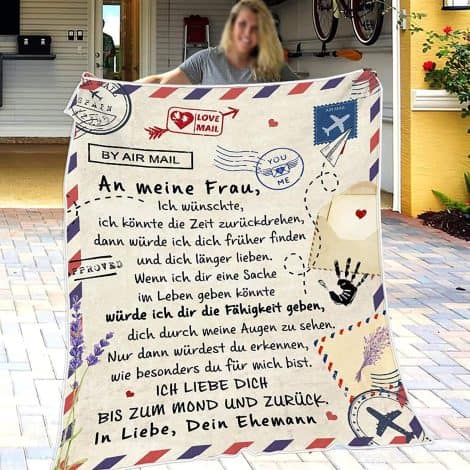 SPAIN
LOVE
MAIL
AIR MAIL
BY AIR MAIL
YOU
ME
An meine Frau,
Ich wünschte,
ich könnte die Zeit zurückdrehen,
dann würde ich dich früher finden
und dich länger lieben.
Wenn ich dir eine Sache
im Leben geben könnte
würde ich dir die Fähigkeit geben,
dich durch meine Augen zu sehen.
Nur dann würdest du erkennen,
wie besonders du für mich bist.
ICH LIEBE DICH
BIS ZUM MOND UND ZURÜCK.
In Liebe, Dein Ehemann
PPROVED